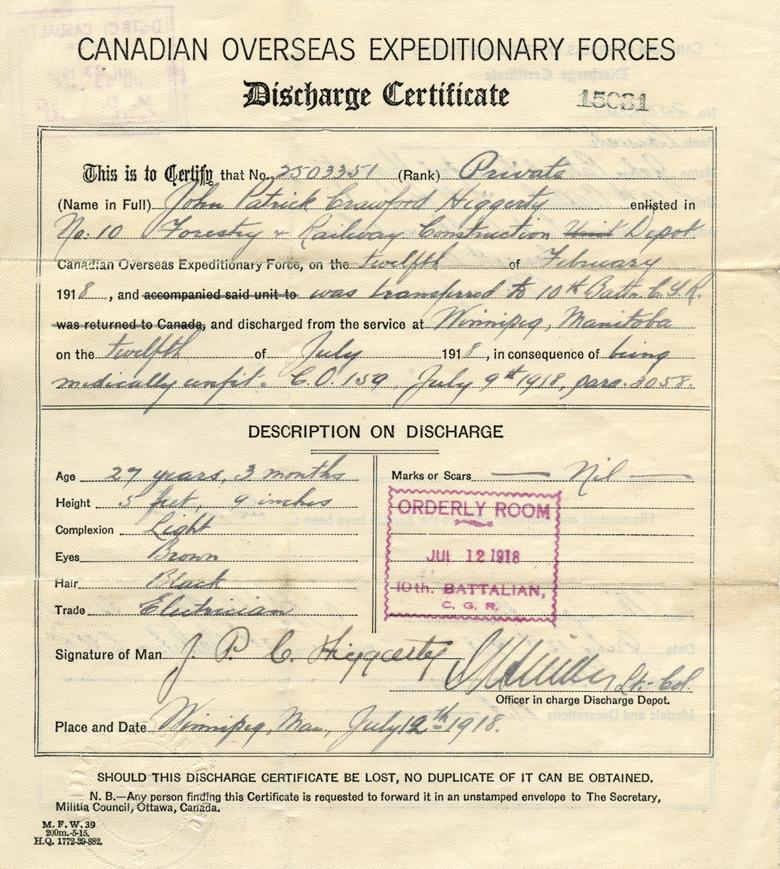 CANADIAN OVERSEAS EXPEDITIONARY FORCES
Discharge Certificate 15031
This is to Certify that No. 2503351 (Rank) Private
(Name in Full) John Patrick Crawford Heggerty enlisted in
No. 10 Forestry & Railway Construction Unit Depot
Canadian Overseas Expeditionary Force, on the twelfth of February
1918, and accompanied said unit to was transferred to 10th Battn C.G.R.
was returned to Canada, and discharged from the service at Winnipeg, Manitoba
on the twelfth of July 1918, in consequence of being
medically unfit. C.O. 159, July 9th 1918, para. 3058.
DESCRIPTION ON DISCHARGE
Age 27 years, 3 months
Height 5 feet, 9 inches
Complexion Light
Eyes Brown
Hair Black
Trade Electrician
Marks or Scars — Nil —
ORDERLY ROOM
JUL 12 1918
10th. BATTALIAN,
C. G. R.
Signature of Man J. P. C. Heggerty Lt. Col.
Officer in charge Discharge Depot.
Place and Date Winnipeg, Man, July 12th 1918.
SHOULD THIS DISCHARGE CERTIFICATE BE LOST, NO DUPLICATE OF IT CAN BE OBTAINED.
N. B.—Any person finding this Certificate is requested to forward it in an unstamped envelope to The Secretary,
Militia Council, Ottawa, Canada.
M. F. W. 39
200m.-5-15.
H.Q. 1772-39-882.